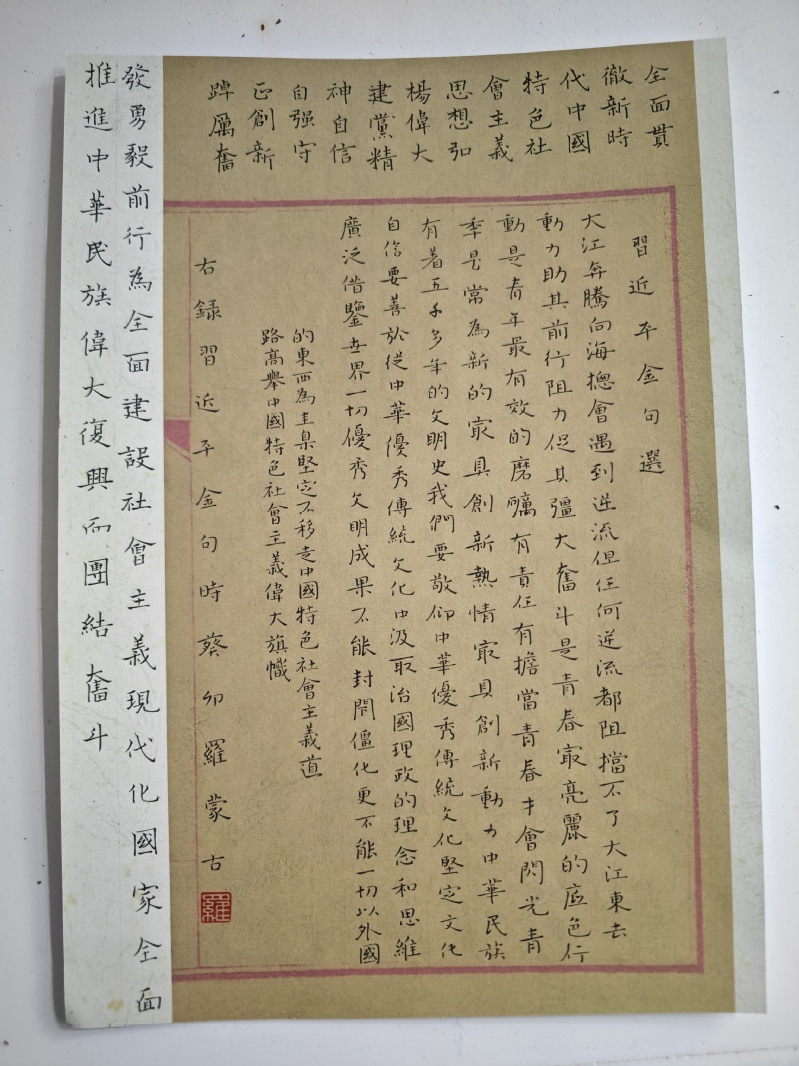 全面貫
徹新時
代中國
特色社
會主義
思想弘
楊偉大
建黨精
神自信
自强守
正創新
踔厲奮
發勇毅前行為全面建設社會主義現代化國家全面
推進中華民族偉大復興而團結奮斗
習近平金句選
大江奔騰向海總會遇到逆流但任何逆流都阻擋不了大江東去
動力助其前行阻力促其彊大奮斗是青春最亮麗的底色行
動是青年最有效的磨礪有責任有擔當青春才會閃光青
年是常為新的最具創新熱情最具創新動力中華民族
有着五千多年的文明史我們要敬仰中華優秀傳統文化堅定文化
自信要善於從中華優秀傳統文化中汲取治國理政的理念和思維
廣泛借鑒世界一切優秀文明成果不能封閉僵化更不能一切以外國
的東西為圭臬堅定不移走中國特色社會主義道
路高舉中國特色社會主義偉大旗幟
右録習近平金句時癸卯羅蒙古
羅